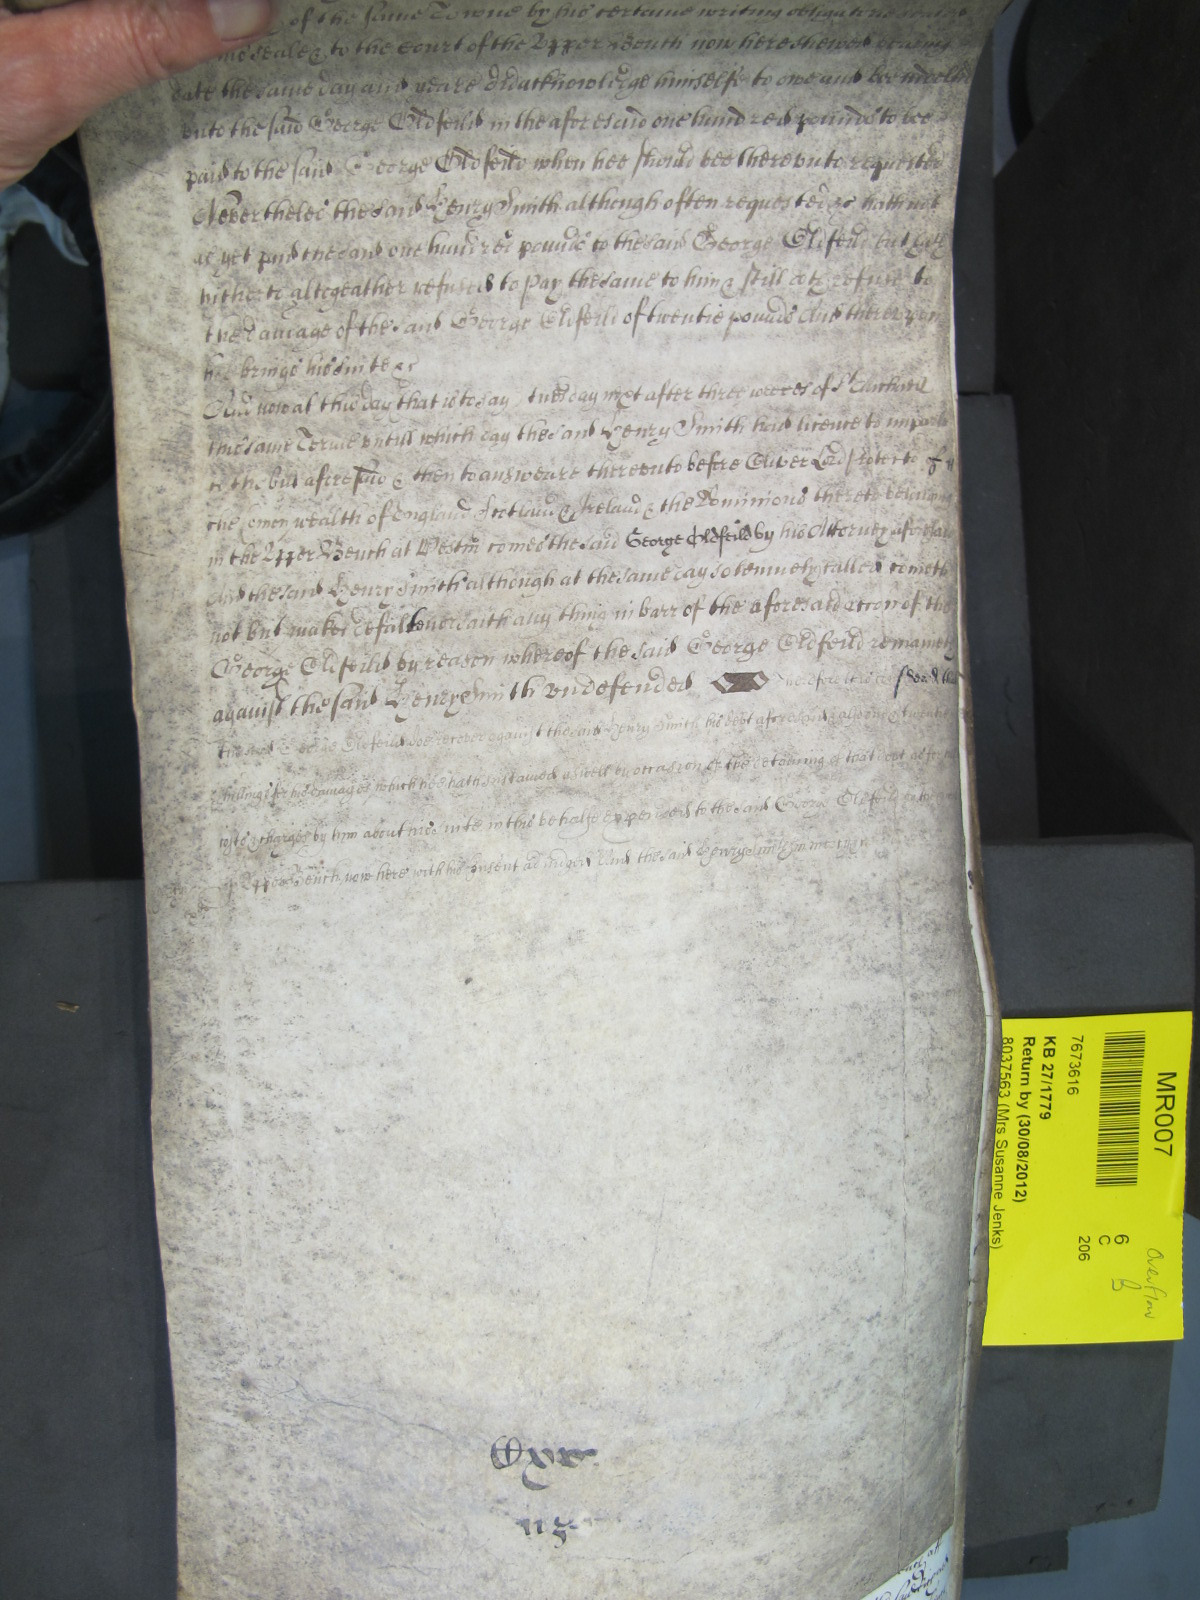 of the same Towne by his certaine writing obligatorie
his seale & to the Court of the Upper Bench now here shewed bearing
date the same day and yeare did acknowledge himselfe to owe and bee
unto the said George Oldfeild in the aforesaid one hundred pounds to bee
paid to the said George Oldfeild when hee should bee thereunto requested
Neverthelес the said Henry Smith although often requested &c hath not
as yet paid the said one hundred pounds to the said George Oldfeild but hath
hitherto altogeather refused to pay the same to him & still doth refuse to
the damage of the said George Oldfeild of twentie pounds And thereupon
hee brings his suite &c
And now at this day that is to say Tuesday next after three weekes of St Michael
this same Terme untill which day the said Henry Smith had licence to
to the bill aforesaid & then to answeare thereunto before Oliver Lord Protector of
the Comon wealth of England Scotland & Ireland & the Dominions thereto belonging
in the Upper Bench at Westm comes the said George Oldfeild by his Attorney aforesaid
And the said Henry Smith although at the same day solemnely called cometh
not but makes default nor saith any thing in barr of the aforesaid action of the
George Oldfeild by reason whereof the said George Oldfeild remaineth
against the said Henry Smith undefended Therefore it is
the said George Oldfeild doe recover against the said Henry Smith his debt aforesaid & alsoe
shillings for his damages which hee hath sustained aswell by occasion of the detaining of that debt as for
costs & charges by him about his suite in this behalfe expended to the said George Oldfeild
Upper Bench now here with his assent adiudged And the said Henry Smith in mercy
Oxr
MR007
7673616
KB 27/1779
Return by (30/08/2012)
8037563 (Mrs Susanne Jenks)
6
C
206
Overflow
B